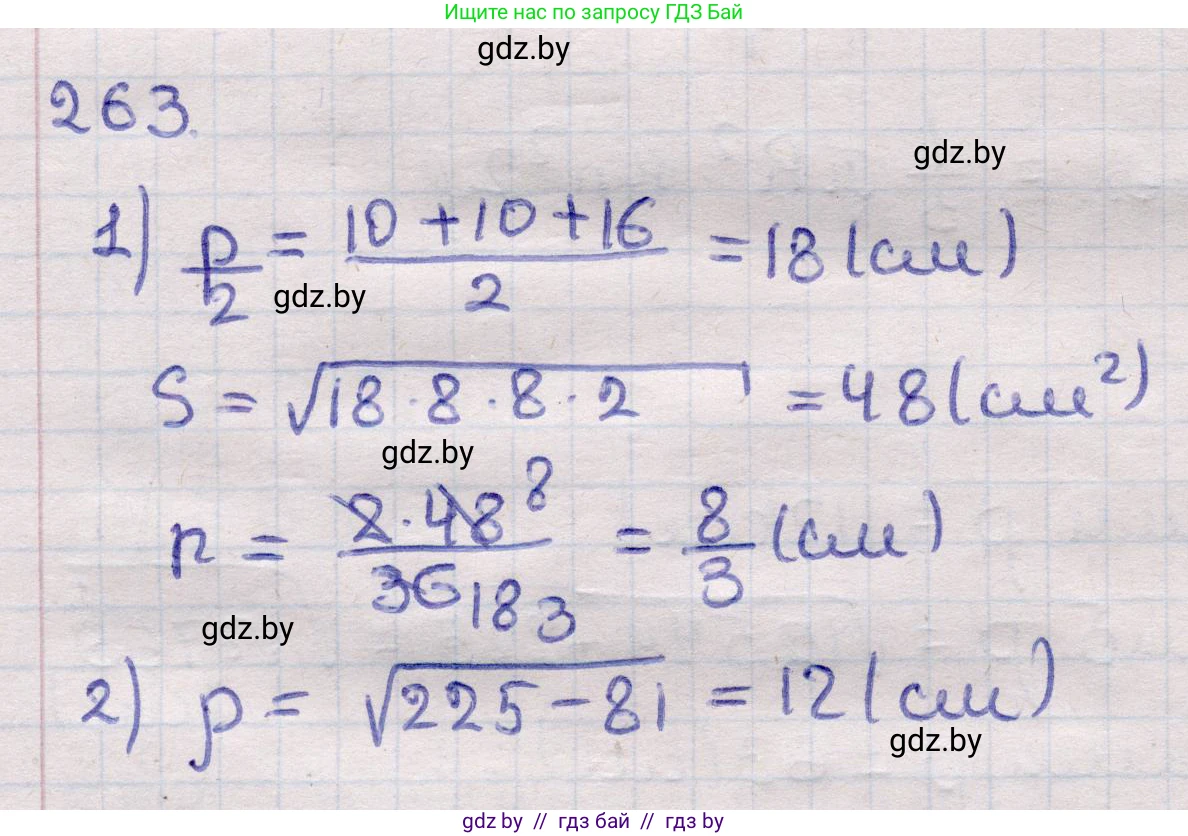 Ищите нас по запросу ГДЗ Бай
gdz.by
263.
gdz.by
1) p/2 = (10 + 10 + 16)/2 = 18 (см)
gdz.by
S = √(18 · 8 · 8 · 2) = 48 (см²)
gdz.by
r = (2 · 48 8)/(36 18 3) = 8/3 (см)
gdz.by
2) p = √(225 - 81) = 12 (см)
gdz.by
gdz by // гдз бай // гдз by